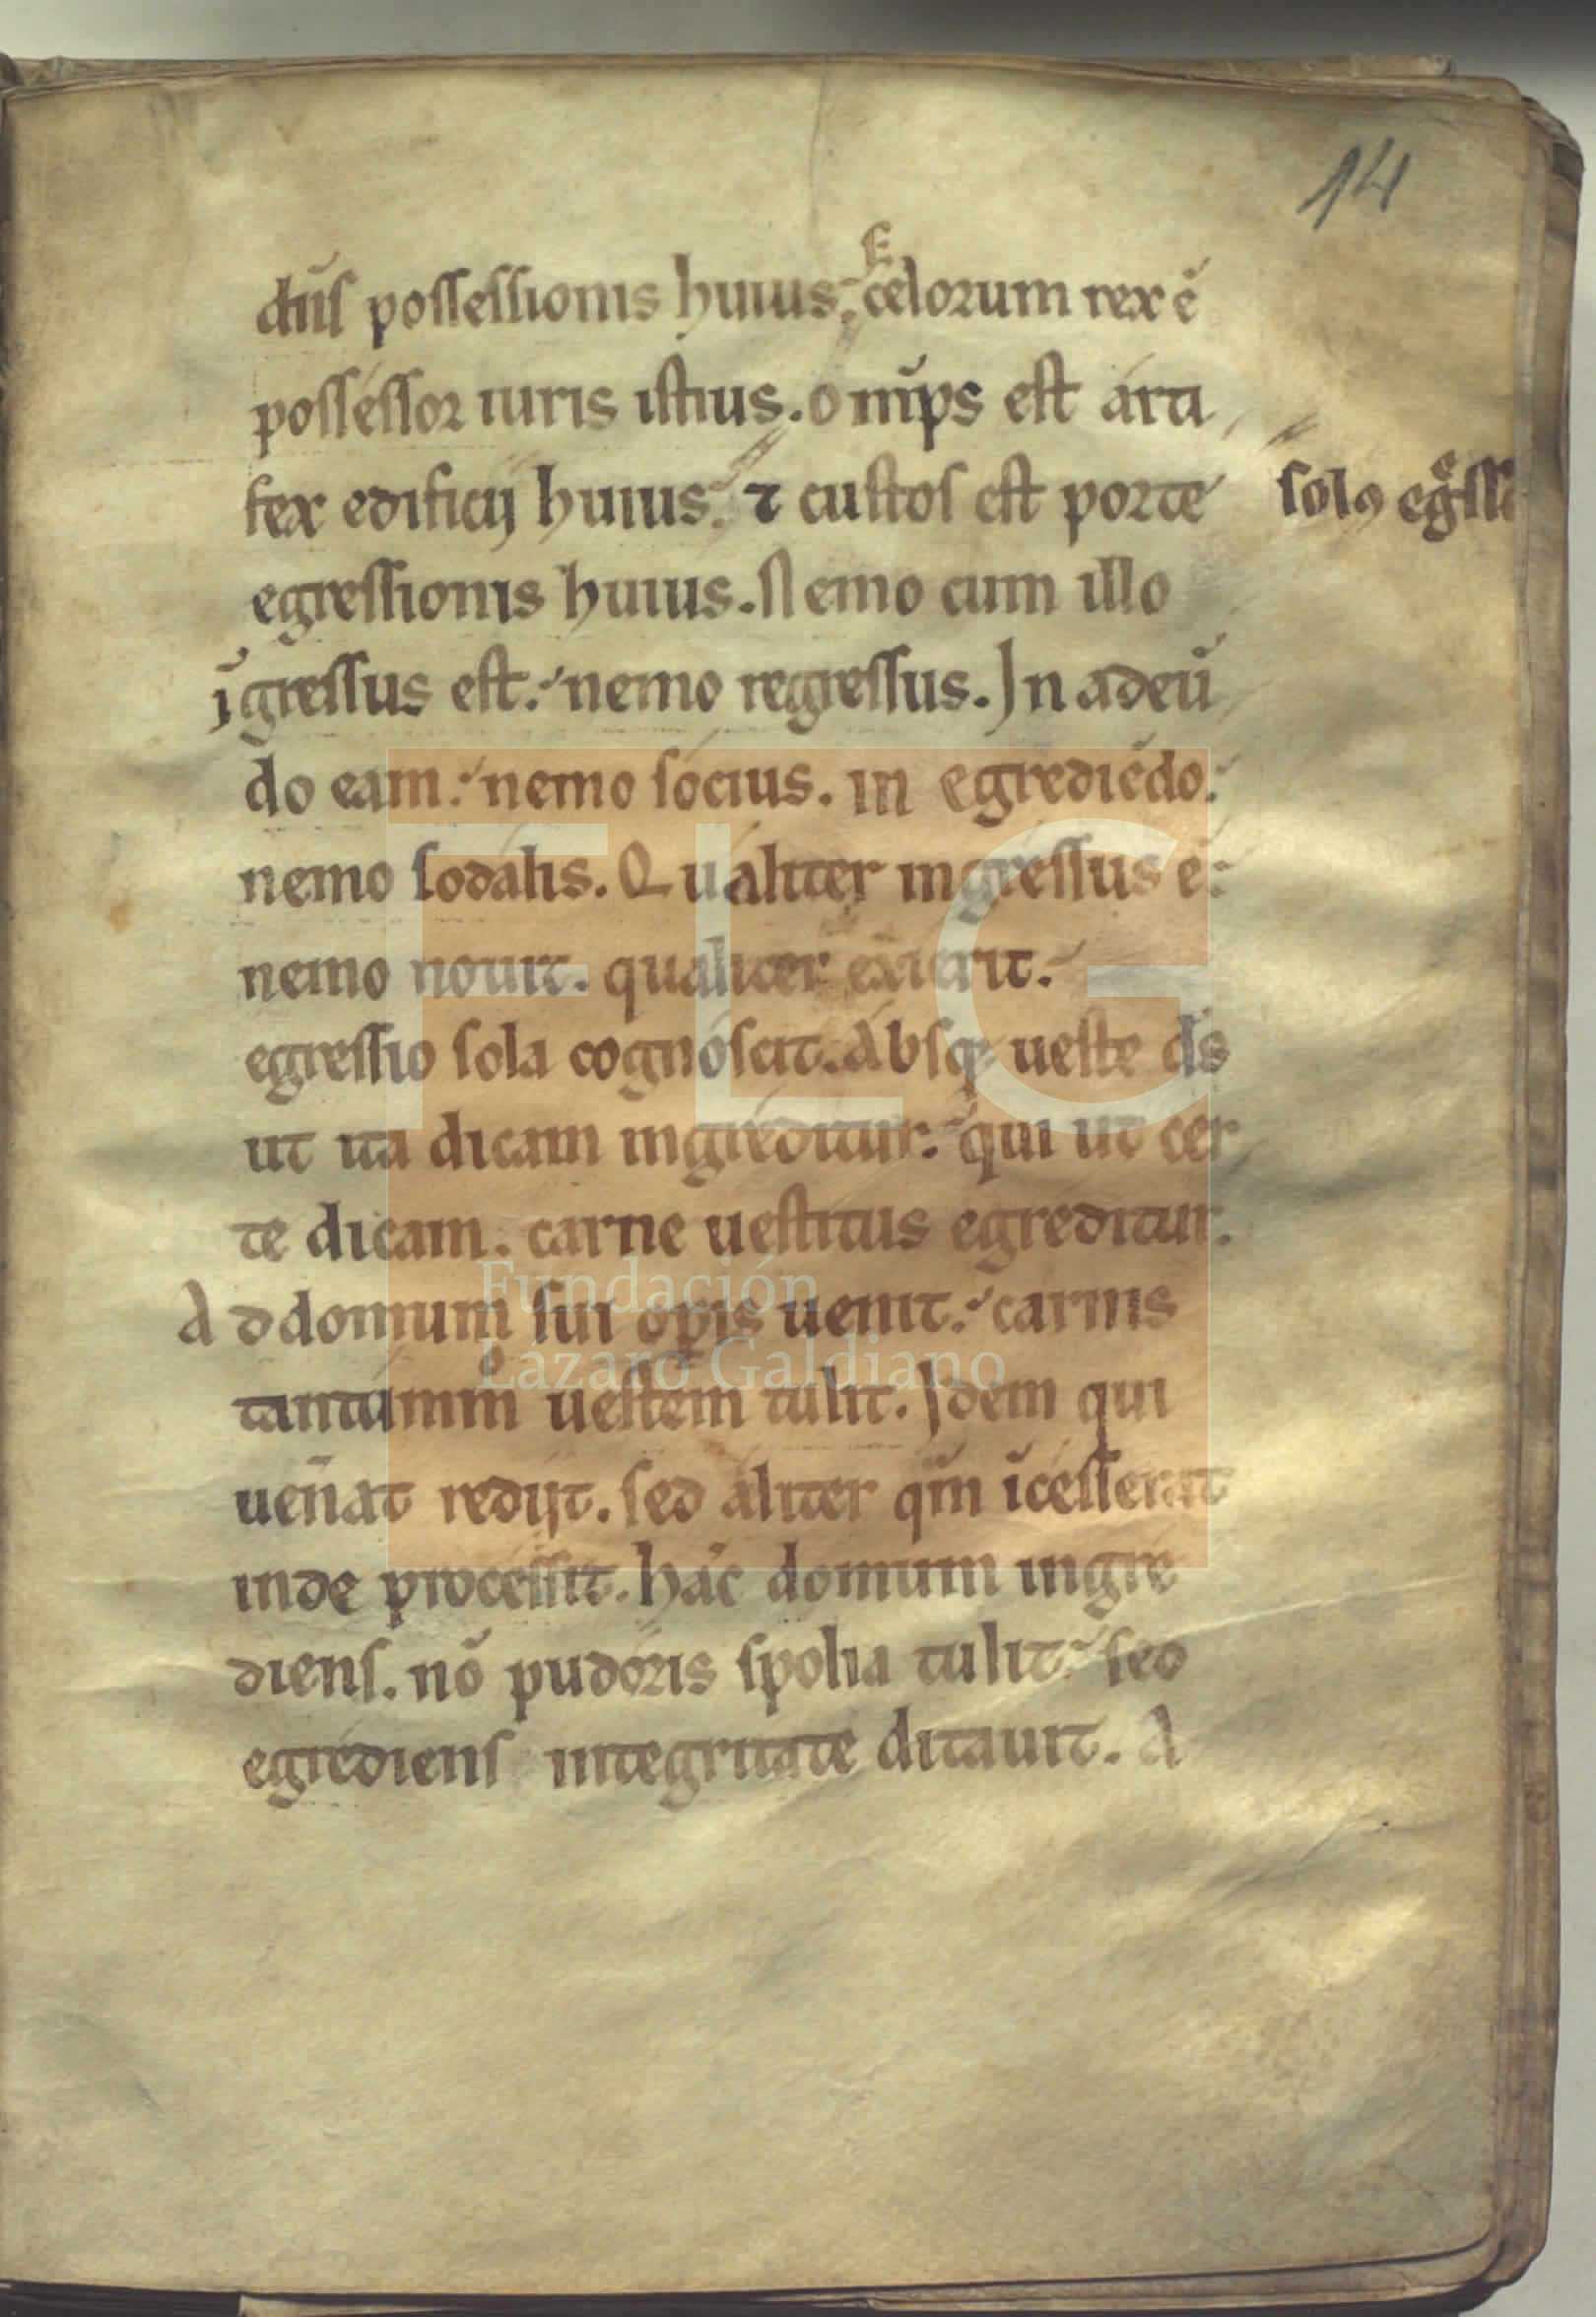 14
E
dn̄s possessionis huius. celorum rex ē
possessor iuris istius. omīps est arti
fex edificij huius. ⁊ custos est porte
solꝰ egͤssꝰ
egressionis huius. Nemo cum illo
īgressus est. nemo regressus. In adeū
do eam. nemo socius. in egrediēdo.
nemo sodalis. Qualiter ingressus ē.
nemo nouit. qualiter exierit.
egressio sola cognoscit. Absqꝫ ueste d̄s
ut ita dicam ingreditur. qui ut cer
te dicam. carne uestitus egreditur.
Ad domum sui opīs uenit. carnis
tantummͦ uestem tulit. Idem qui
uen̄at redijt. sed aliter qm̄ īcesserat
inde processit. hāc domum ingre
diens. nō pudoris spolia tulit. sed
egrediens integritate ditauit. A
FLG
Fundación
Lázaro Galdiano